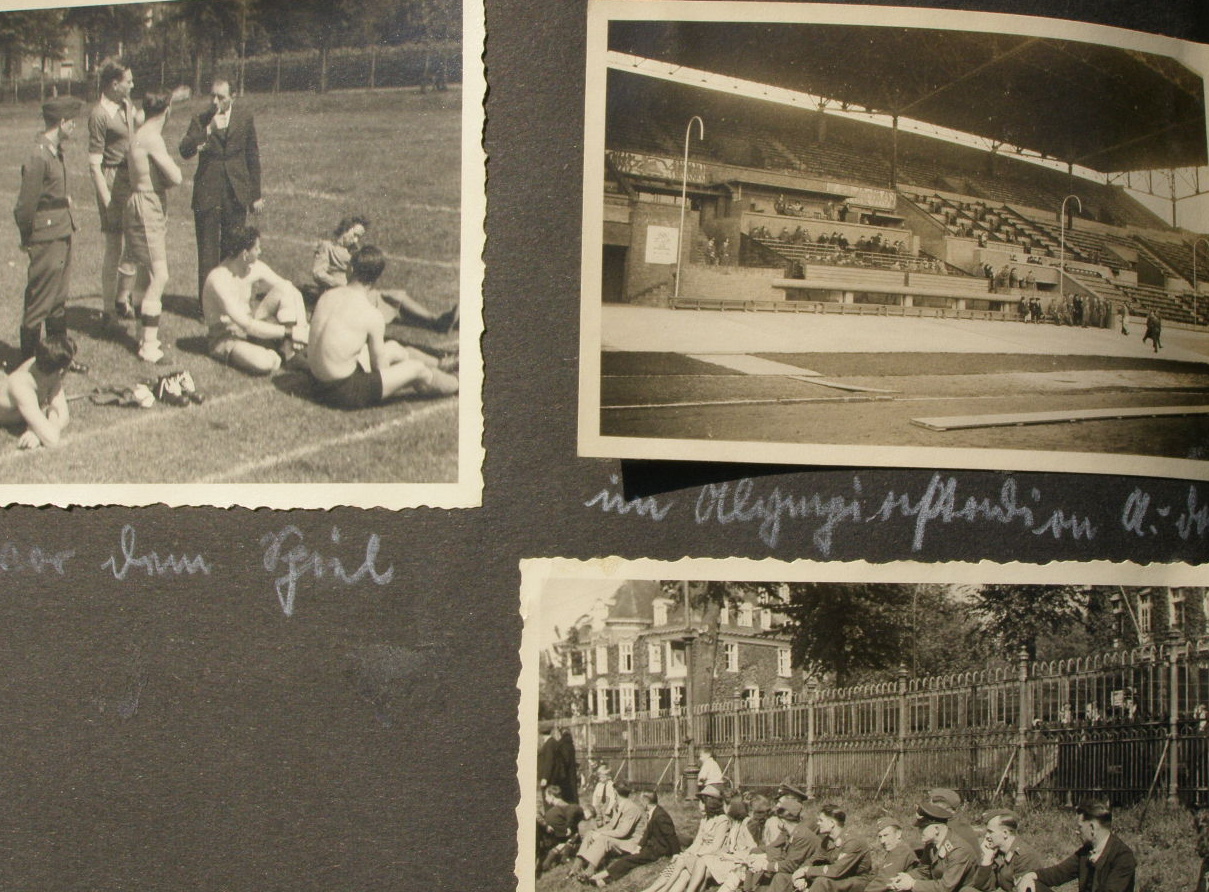 vor dem Spiel
im Olympiastadion A. da